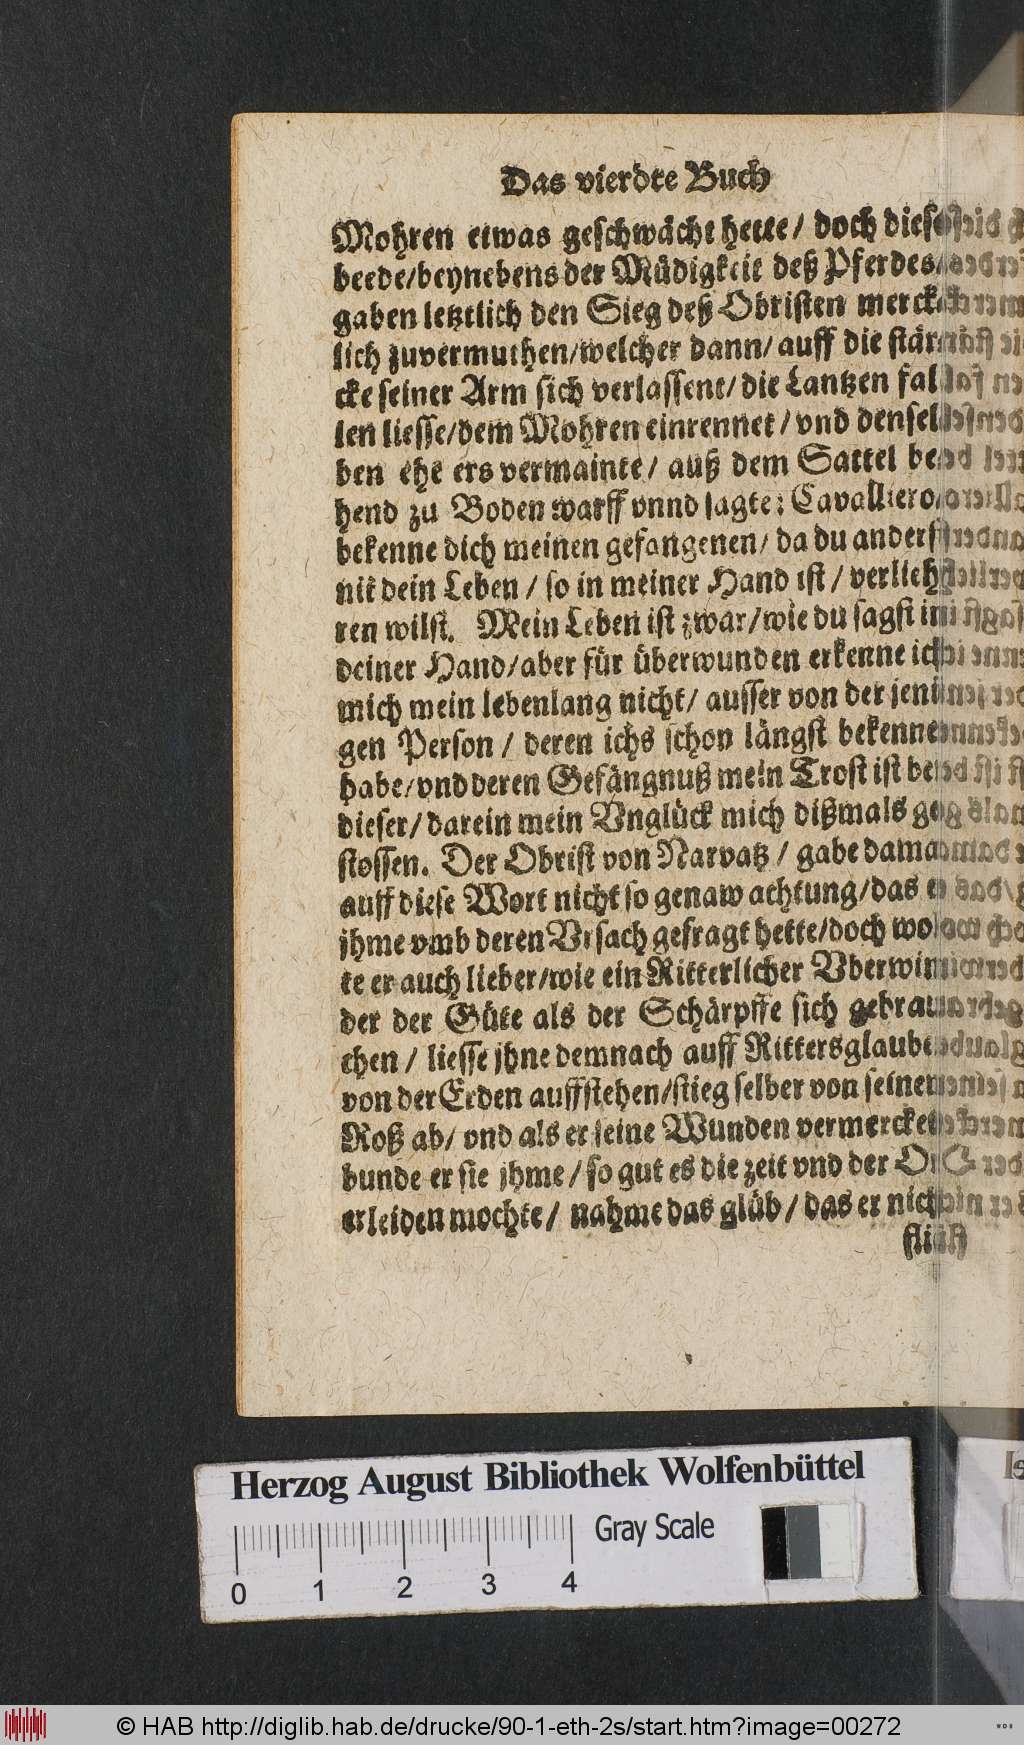 Das vierdte Buch
Mohren etwas geschwächt hette / doch diese
beede / beynebens der Müdigkeit deß Pferdes /
gaben letztlich den Sieg deß Obristen merck-
lich zuvermuthen / welcher dann / auff die stär-
cke seiner Arm sich verlassent / die Lantzen fal-
len liesse / dem Mohren einrennet / vnd densel-
ben ehe ers vermainte / auß dem Sattel be-
hend zu Boden warff vnnd sagte: Cavalliero /
bekenne dich meinen gefangenen / da du anderst
nit dein Leben / so in meiner Hand ist / verlieh-
ren wilst. Mein Leben ist zwar / wie du sagst in
deiner Hand / aber für überwunden erkenne ich
mich mein lebenlang nicht / ausser von der jeni-
gen Person / deren ichs schon längst bekennet
habe / vnd deren Gefängnuß mein Trost ist bey
dieser / darein mein Vnglück mich dißmals ge-
stossen. Der Obrist von Narvatz / gabe damals
auff diese Wort nicht so genaw achtung / das er
jhme vmb deren Vrsach gefragt hette / doch wol-
te er auch lieber / wie ein Ritterlicher Vberwin-
der der Güte als der Schärpffe sich gebrau-
chen / liesse jhne demnach auff Rittersglauben
von der Erden auffstehen / stieg selber von seinem
Roß ab / vnd als er seine Wunden vermercket /
bunde er sie jhme / so gut es die zeit vnd der Ort
erleiden mochte / nahme das glüb / das er nicht
Herzog August Bibliothek Wolfenbüttel
Gray Scale
0 1 2 3 4
© HAB http://diglib.hab.de/drucke/90-1-eth-2s/start.htm?image=00272